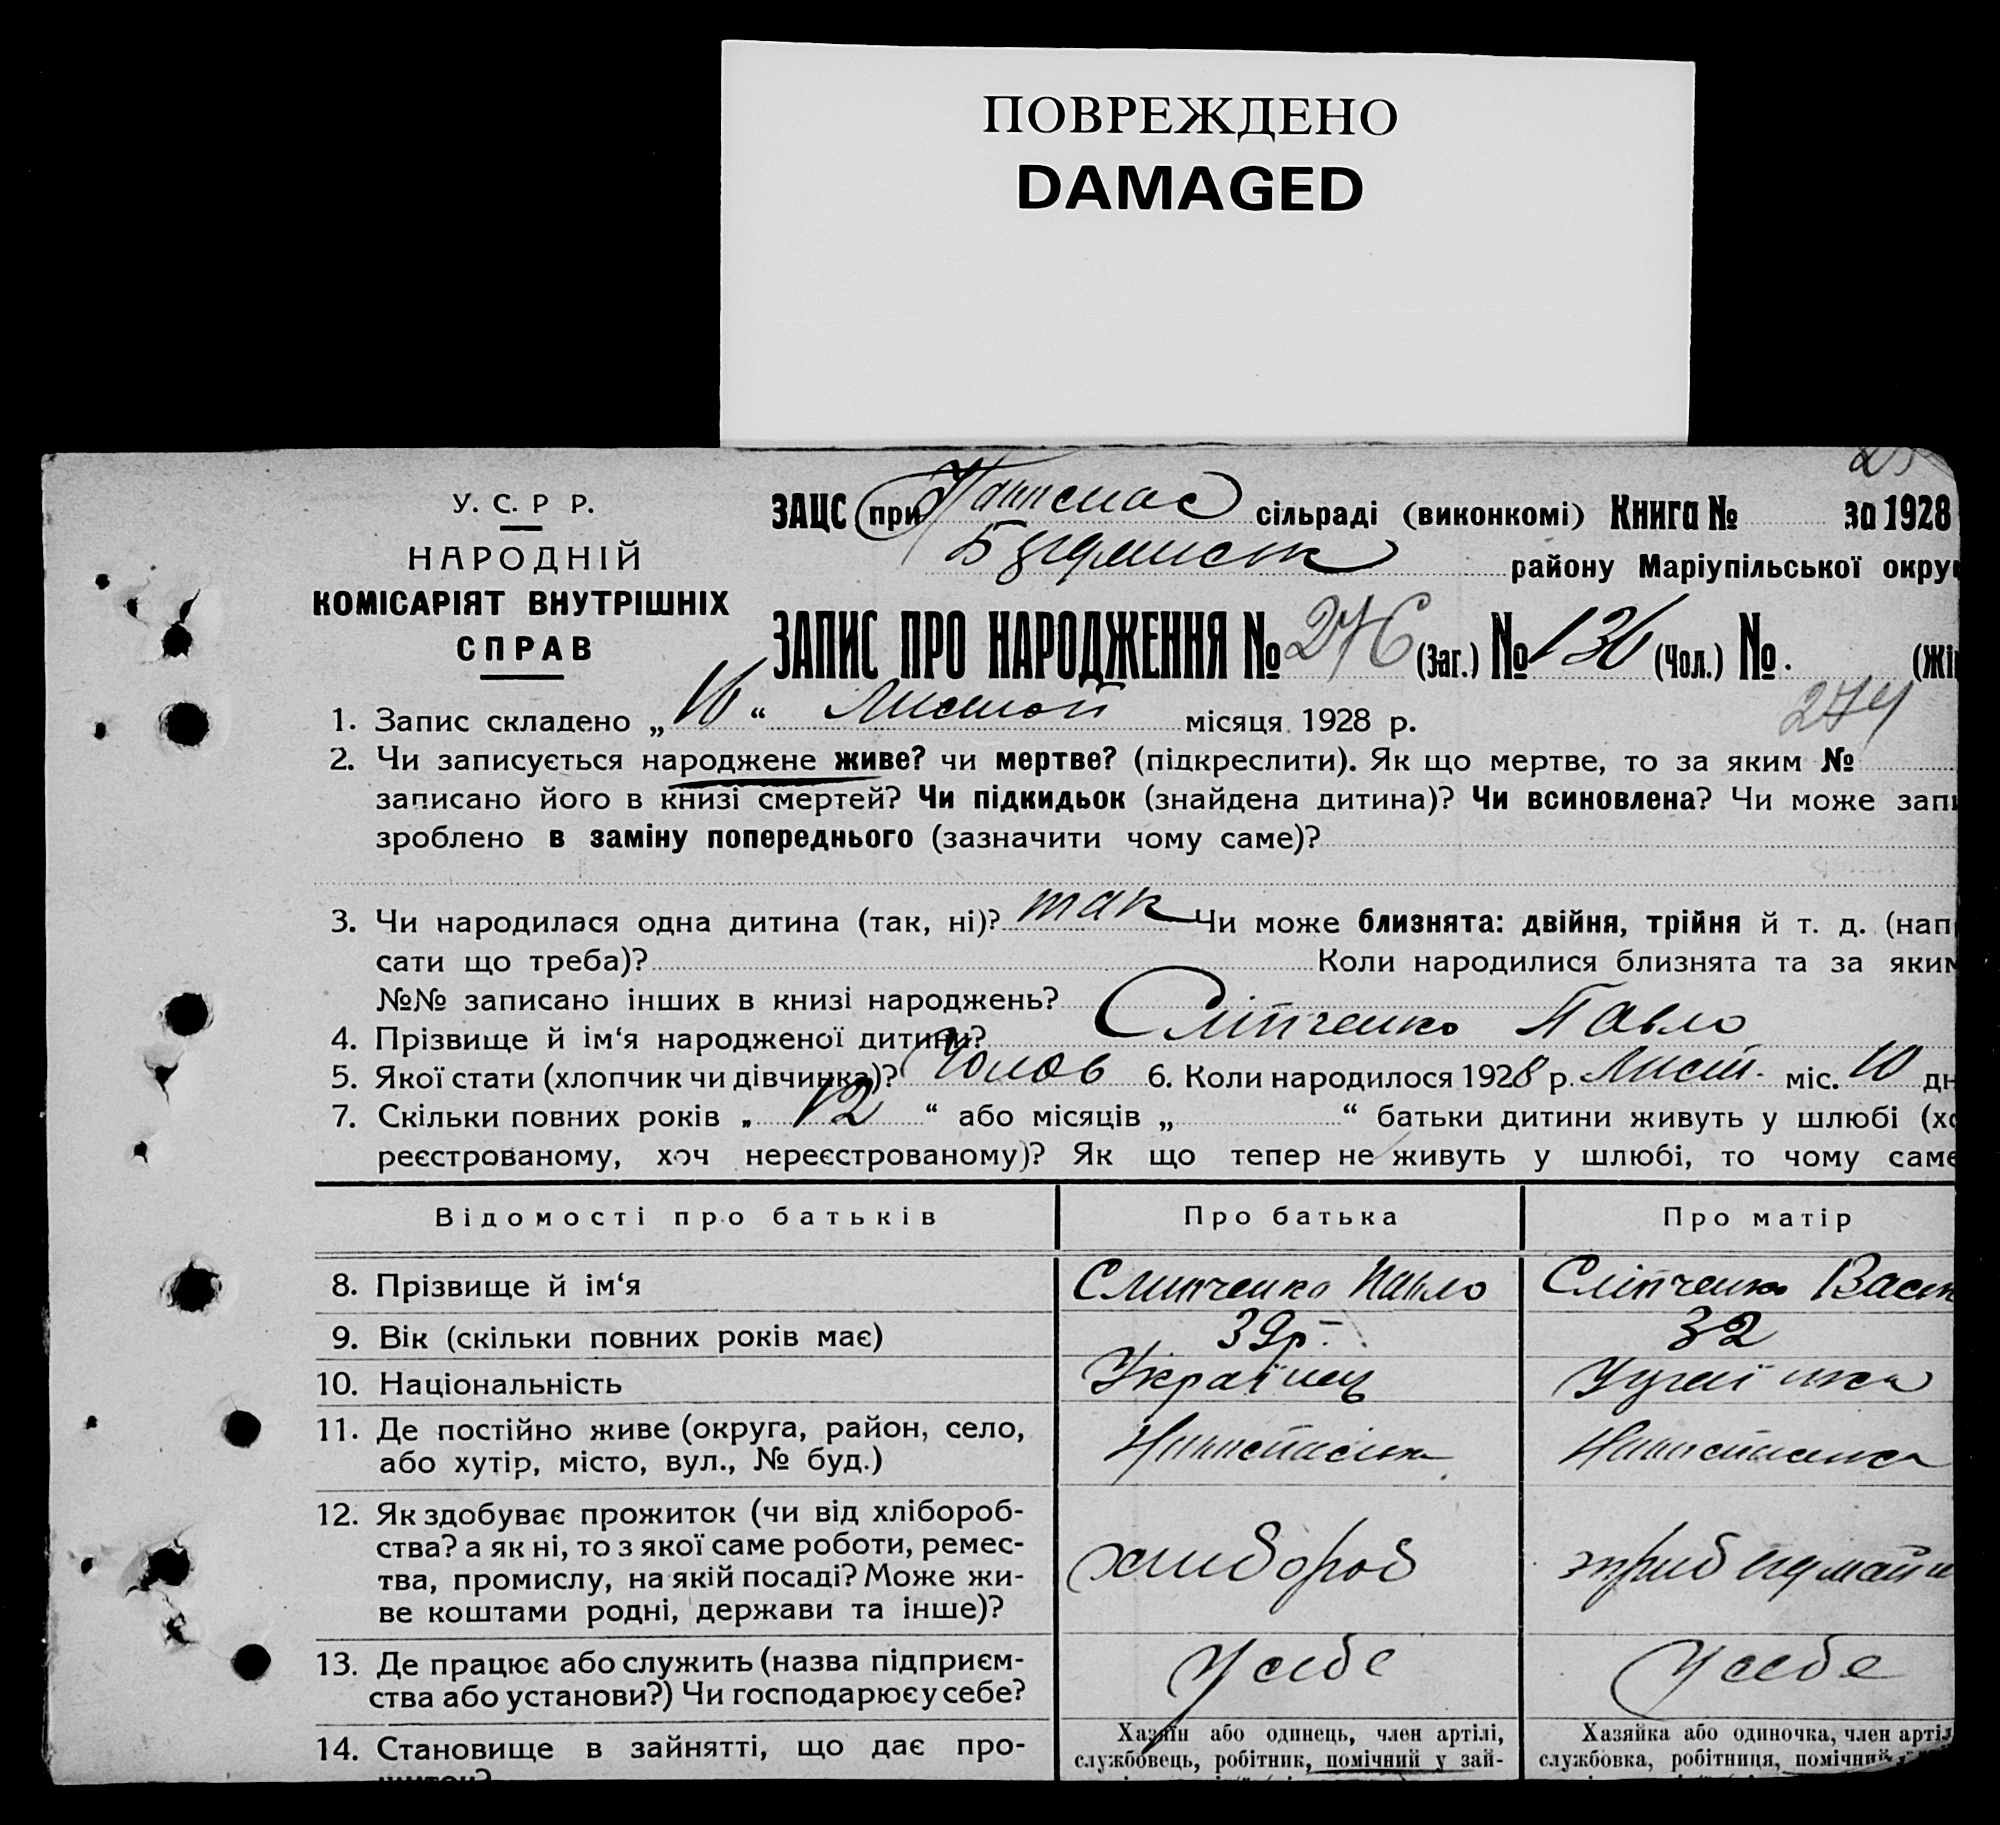 ПОВРЕЖДЕНО
DAMAGED
У. С. Р Р.
НАРОДНІЙ
КОМІСАРІЯТ ВНУТРІШНІХ
СПРАВ
ЗАЦС при сільраді (виконкомі) Книга № за 1928
району Маріупільської окру
ЗАПИС ПРО НАРОДЖЕННЯ № 276 (Заг.) № 136 (Чол.) № (Жі
274
1. Запис складено „ 16 “ місяця 1928 р.
2. Чи записується народжене живе? чи мертве? (підкреслити). Як що мертве, то за яким №
записано його в книзі смертей? Чи підкидьок (знайдена дитина)? Чи всиновлена? Чи може зап
зроблено в заміну попереднього (зазначити чому саме)?
3. Чи народилася одна дитина (так, ні)? так Чи може близнята: двійня, трійня й т. д. (нап
сати що треба)? Коли народилися близнята та за яким
№№ записано інших в книзі народжень?
4. Прізвище й ім‘я народженої дитини? Сліпченко Павло
5. Якої стати (хлопчик чи дівчинка)? Чолов 6. Коли народилося 1928 р. Лист. міс. 10 дн
7. Скільки повних років „ 12 “ або місяців „ “ батьки дитини живуть у шлюбі (хо
реєстрованому, хоч нереєстрованому)? Як що тепер не живуть у шлюбі, то чому саме
Відомості про батьків Про батька Про матір
8. Прізвище й ім‘я Слипченко Павло Сліпченко
9. Вік (скільки повних років має) 39р. 32
10. Національність Українець
11. Де постійно живе (округа, район, село,
або хутір, місто, вул., № буд.)
12. Як здобуває прожиток (чи від хлібороб-
ства? а як ні, то з якої саме роботи, ремес-
тва, промислу, на якій посаді? Може жи-
ве коштами родні, держави та інше)?
хлибороб
13. Де працює або служить (назва підприєм-
ства або установи?) Чи господарює у себе?
У себе У себе
14. Становище в зайнятті, що дає про-
Хазяїн або одинець, член артілі,
службовець, робітник, помічний у зай-
Хазяйка або одиночка, член артіл
службовка, робітниця, помічний